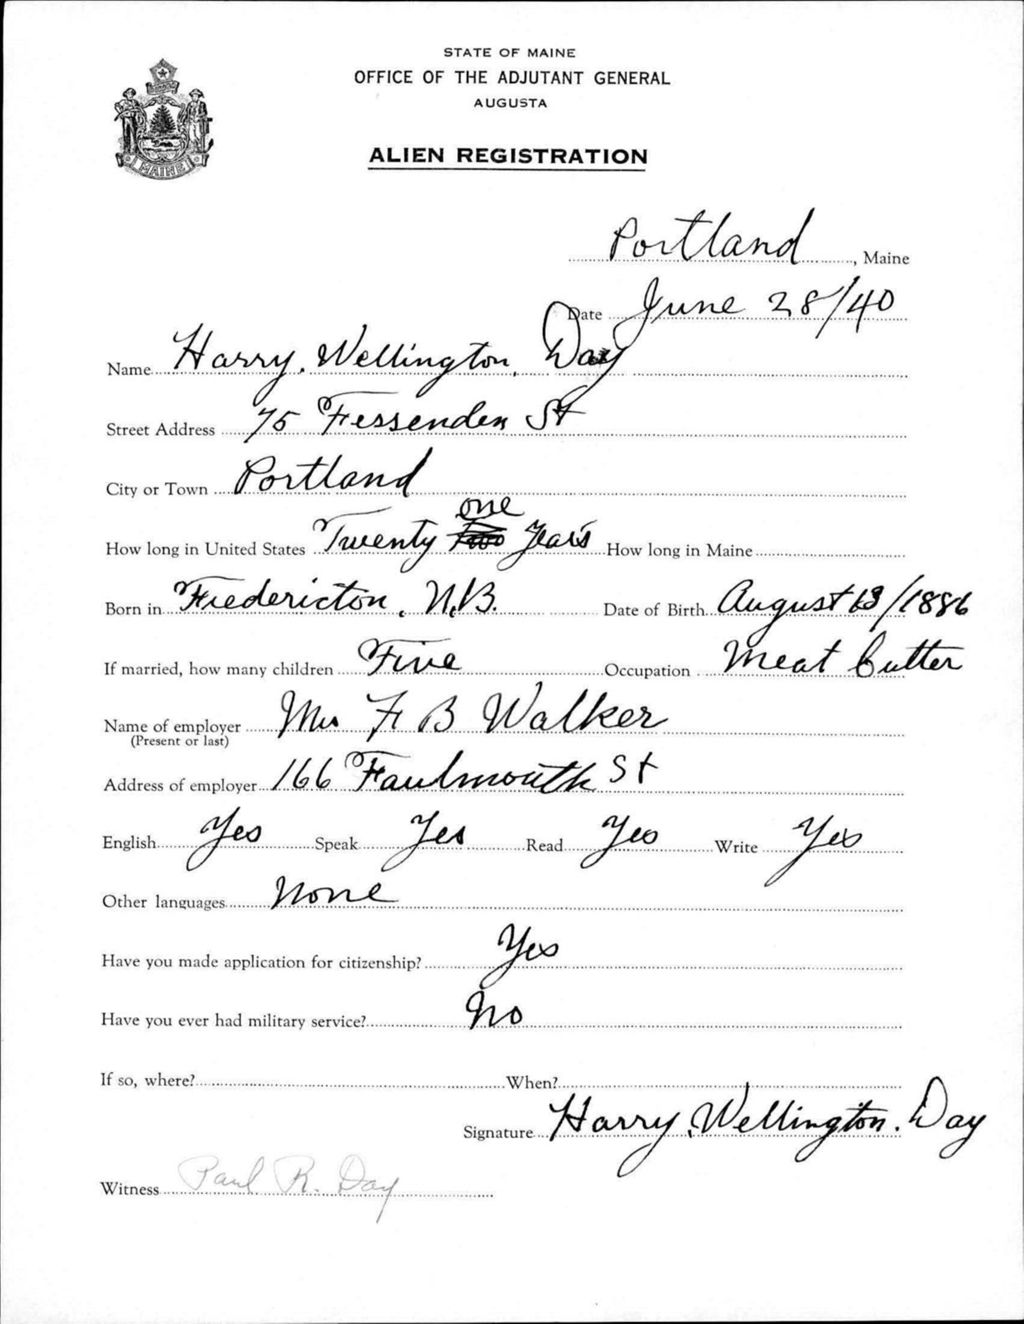 STATE OF MAINE
OFFICE OF THE ADJUTANT GENERAL
AUGUSTA
ALIEN REGISTRATION
MAINE
Portland, Maine
Date June 28/40
Name Harry, Wellington, Day
Street Address 75 Fessenden St
City or Town Portland
one
How long in United States Twenty Two Years How long in Maine
Born in Fredericton, N.B. Date of Birth August 13/1886
If married, how many children Five Occupation Meat Cutter
Name of employer Mr F B Walker
(Present or last)
Address of employer 166 Faulmouth St
English Yes Speak Yes Read Yes Write Yes
Other languages None
Have you made application for citizenship? Yes
Have you ever had military service? No
If so, where? When?
Signature Harry, Wellington. Day
Witness Paul R. Day